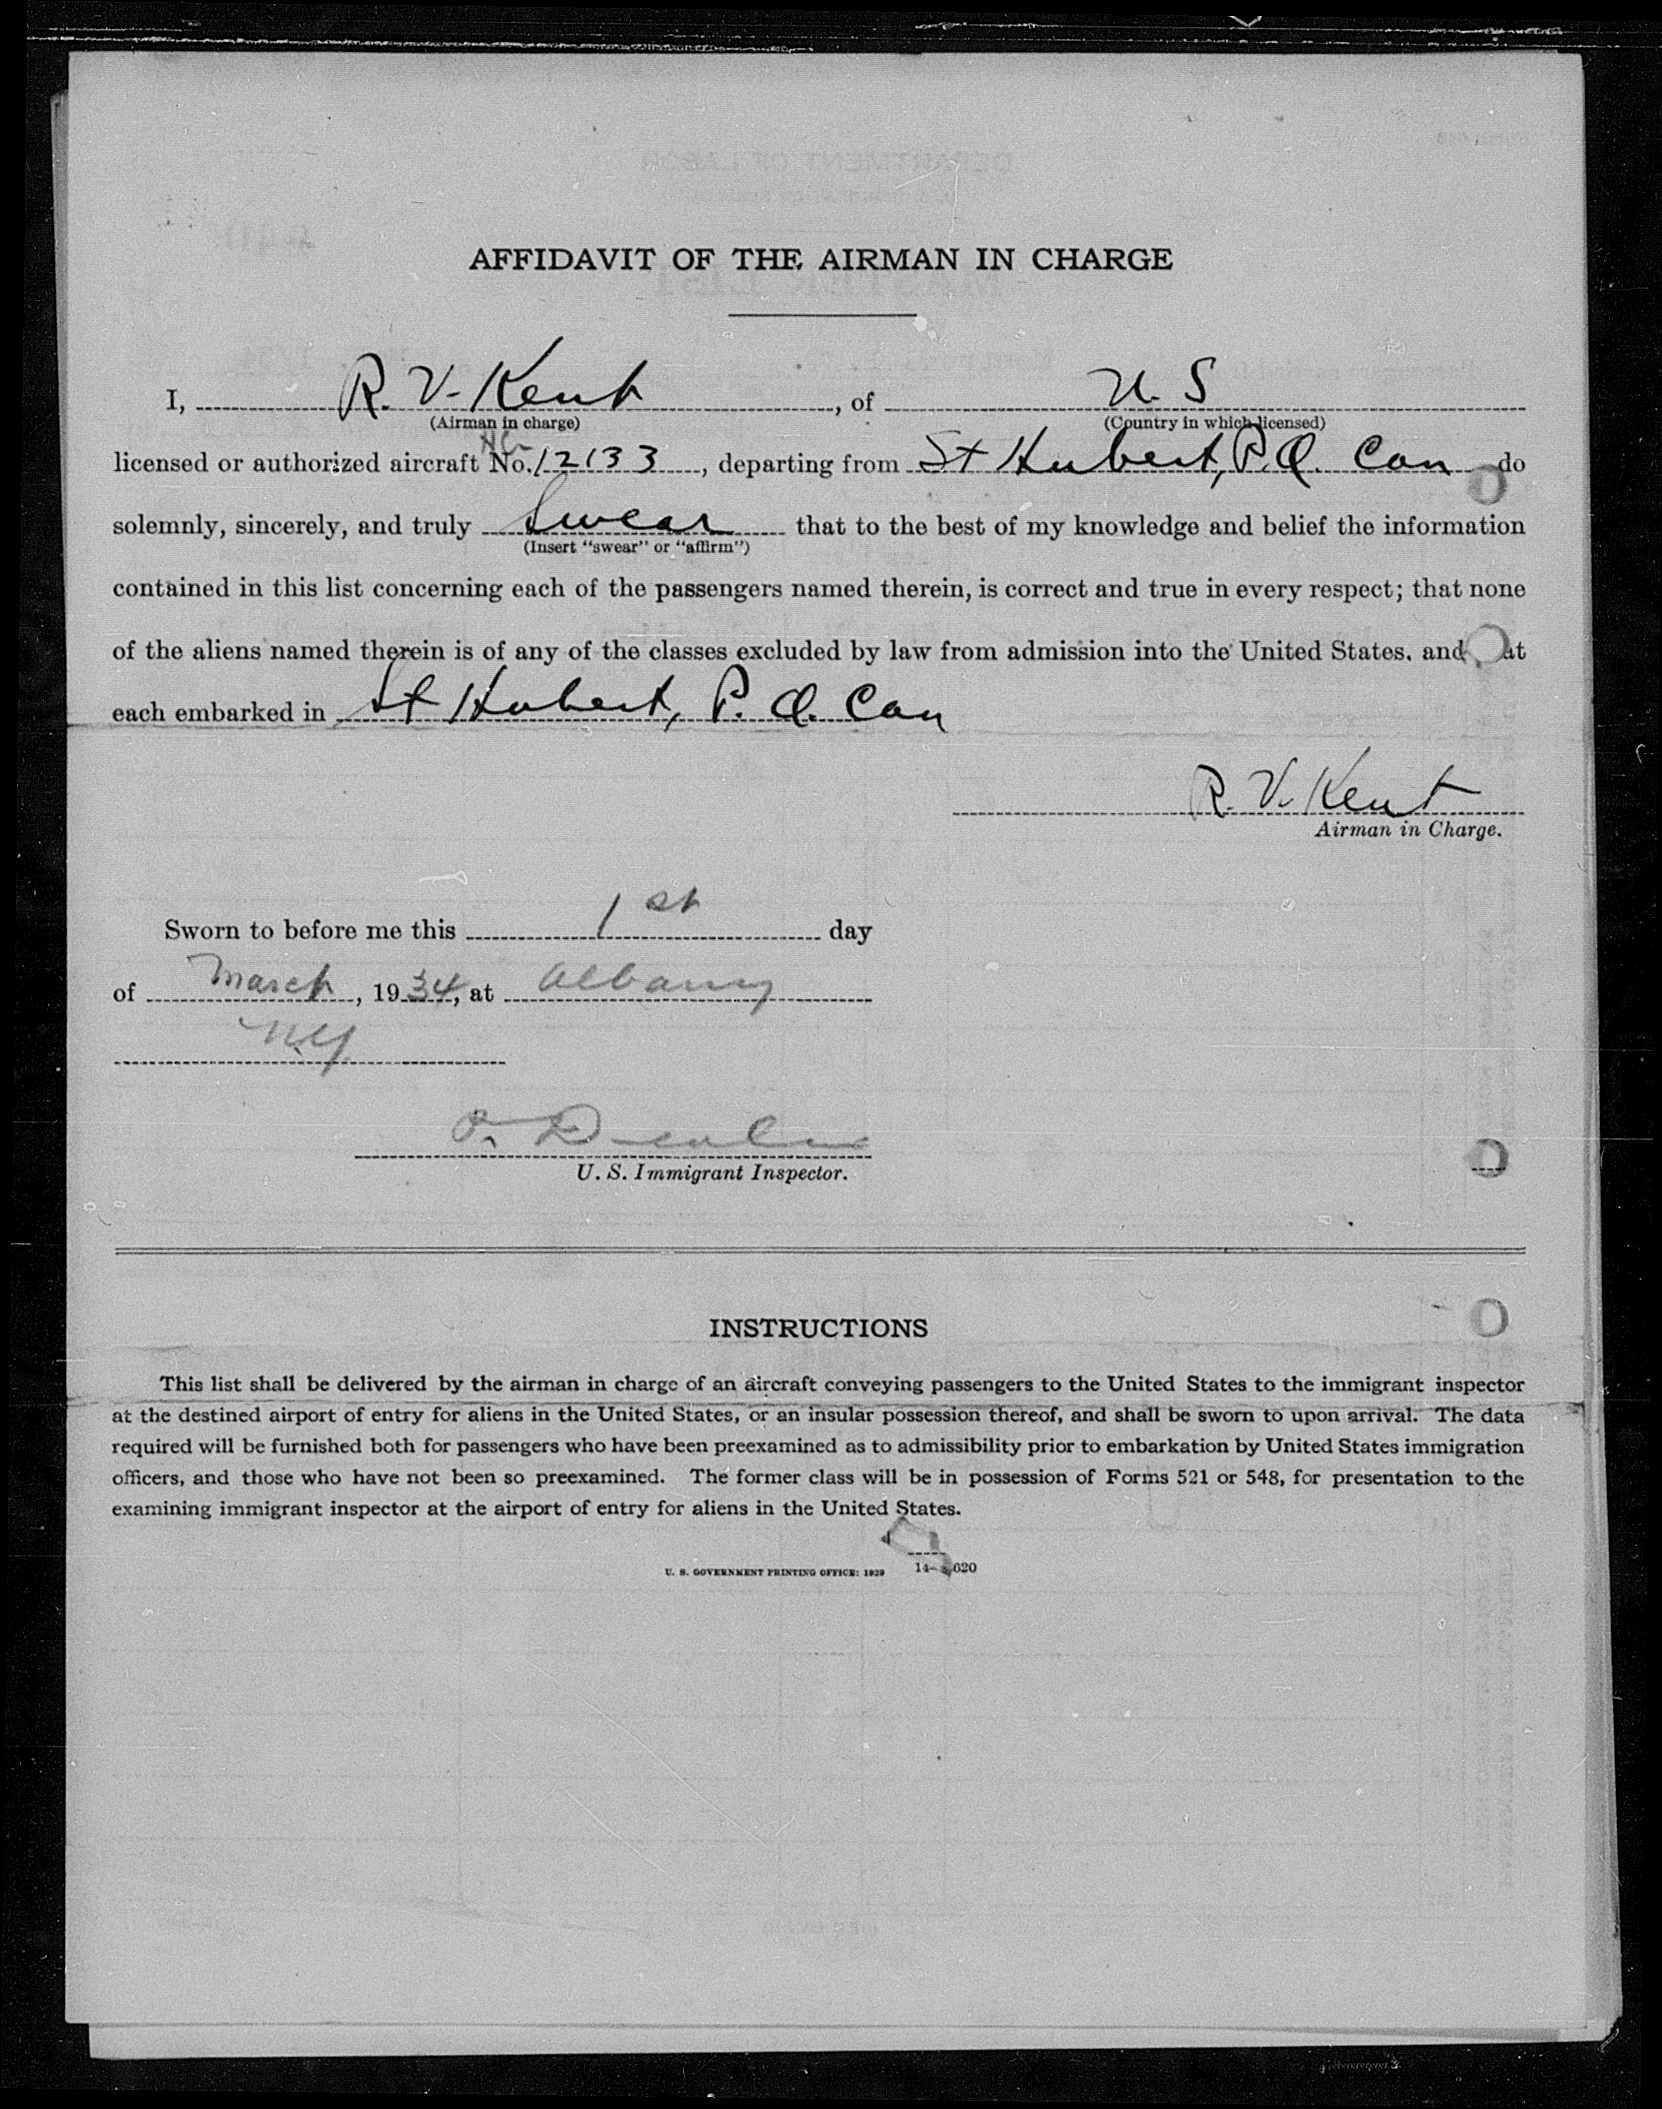 AFFIDAVIT OF THE AIRMAN IN CHARGE
I, R. V. Kent, of U. S
(Airman in charge) (Country in which licensed)
NC
licensed or authorized aircraft No. 12133, departing from St Hubert, P.Q. Can do
solemnly, sincerely, and truly Swear that to the best of my knowledge and belief the information
(Insert "swear" or "affirm")
contained in this list concerning each of the passengers named therein, is correct and true in every respect; that none
of the aliens named therein is of any of the classes excluded by law from admission into the United States, and at
each embarked in St Hubert, P. Q. Can
R. V. Kent
Airman in Charge.
Sworn to before me this 1st day
of March, 1934, at Albany
N.Y.
U. S. Immigrant Inspector.
INSTRUCTIONS
This list shall be delivered by the airman in charge of an aircraft conveying passengers to the United States to the immigrant inspector
at the destined airport of entry for aliens in the United States, or an insular possession thereof, and shall be sworn to upon arrival. The data
required will be furnished both for passengers who have been preexamined as to admissibility prior to embarkation by United States immigration
officers, and those who have not been so preexamined. The former class will be in possession of Forms 521 or 548, for presentation to the
examining immigrant inspector at the airport of entry for aliens in the United States.
U. S. GOVERNMENT PRINTING OFFICE: 1929